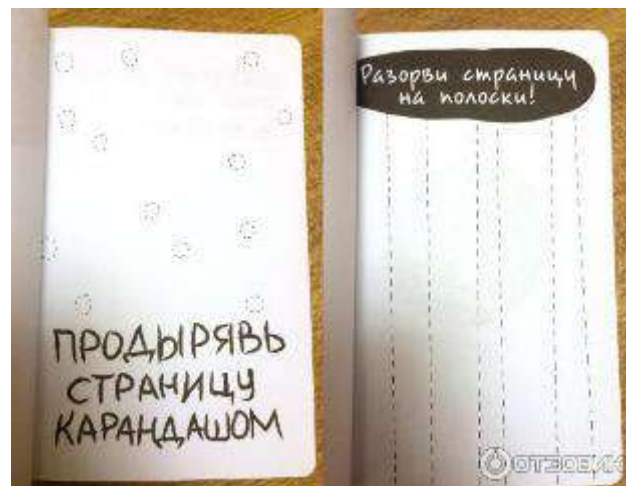 ПРОДЫРЯВЬ
СТРАНИЦУ
КАРАНДАШОМ
Разорви страницу
на полоски!